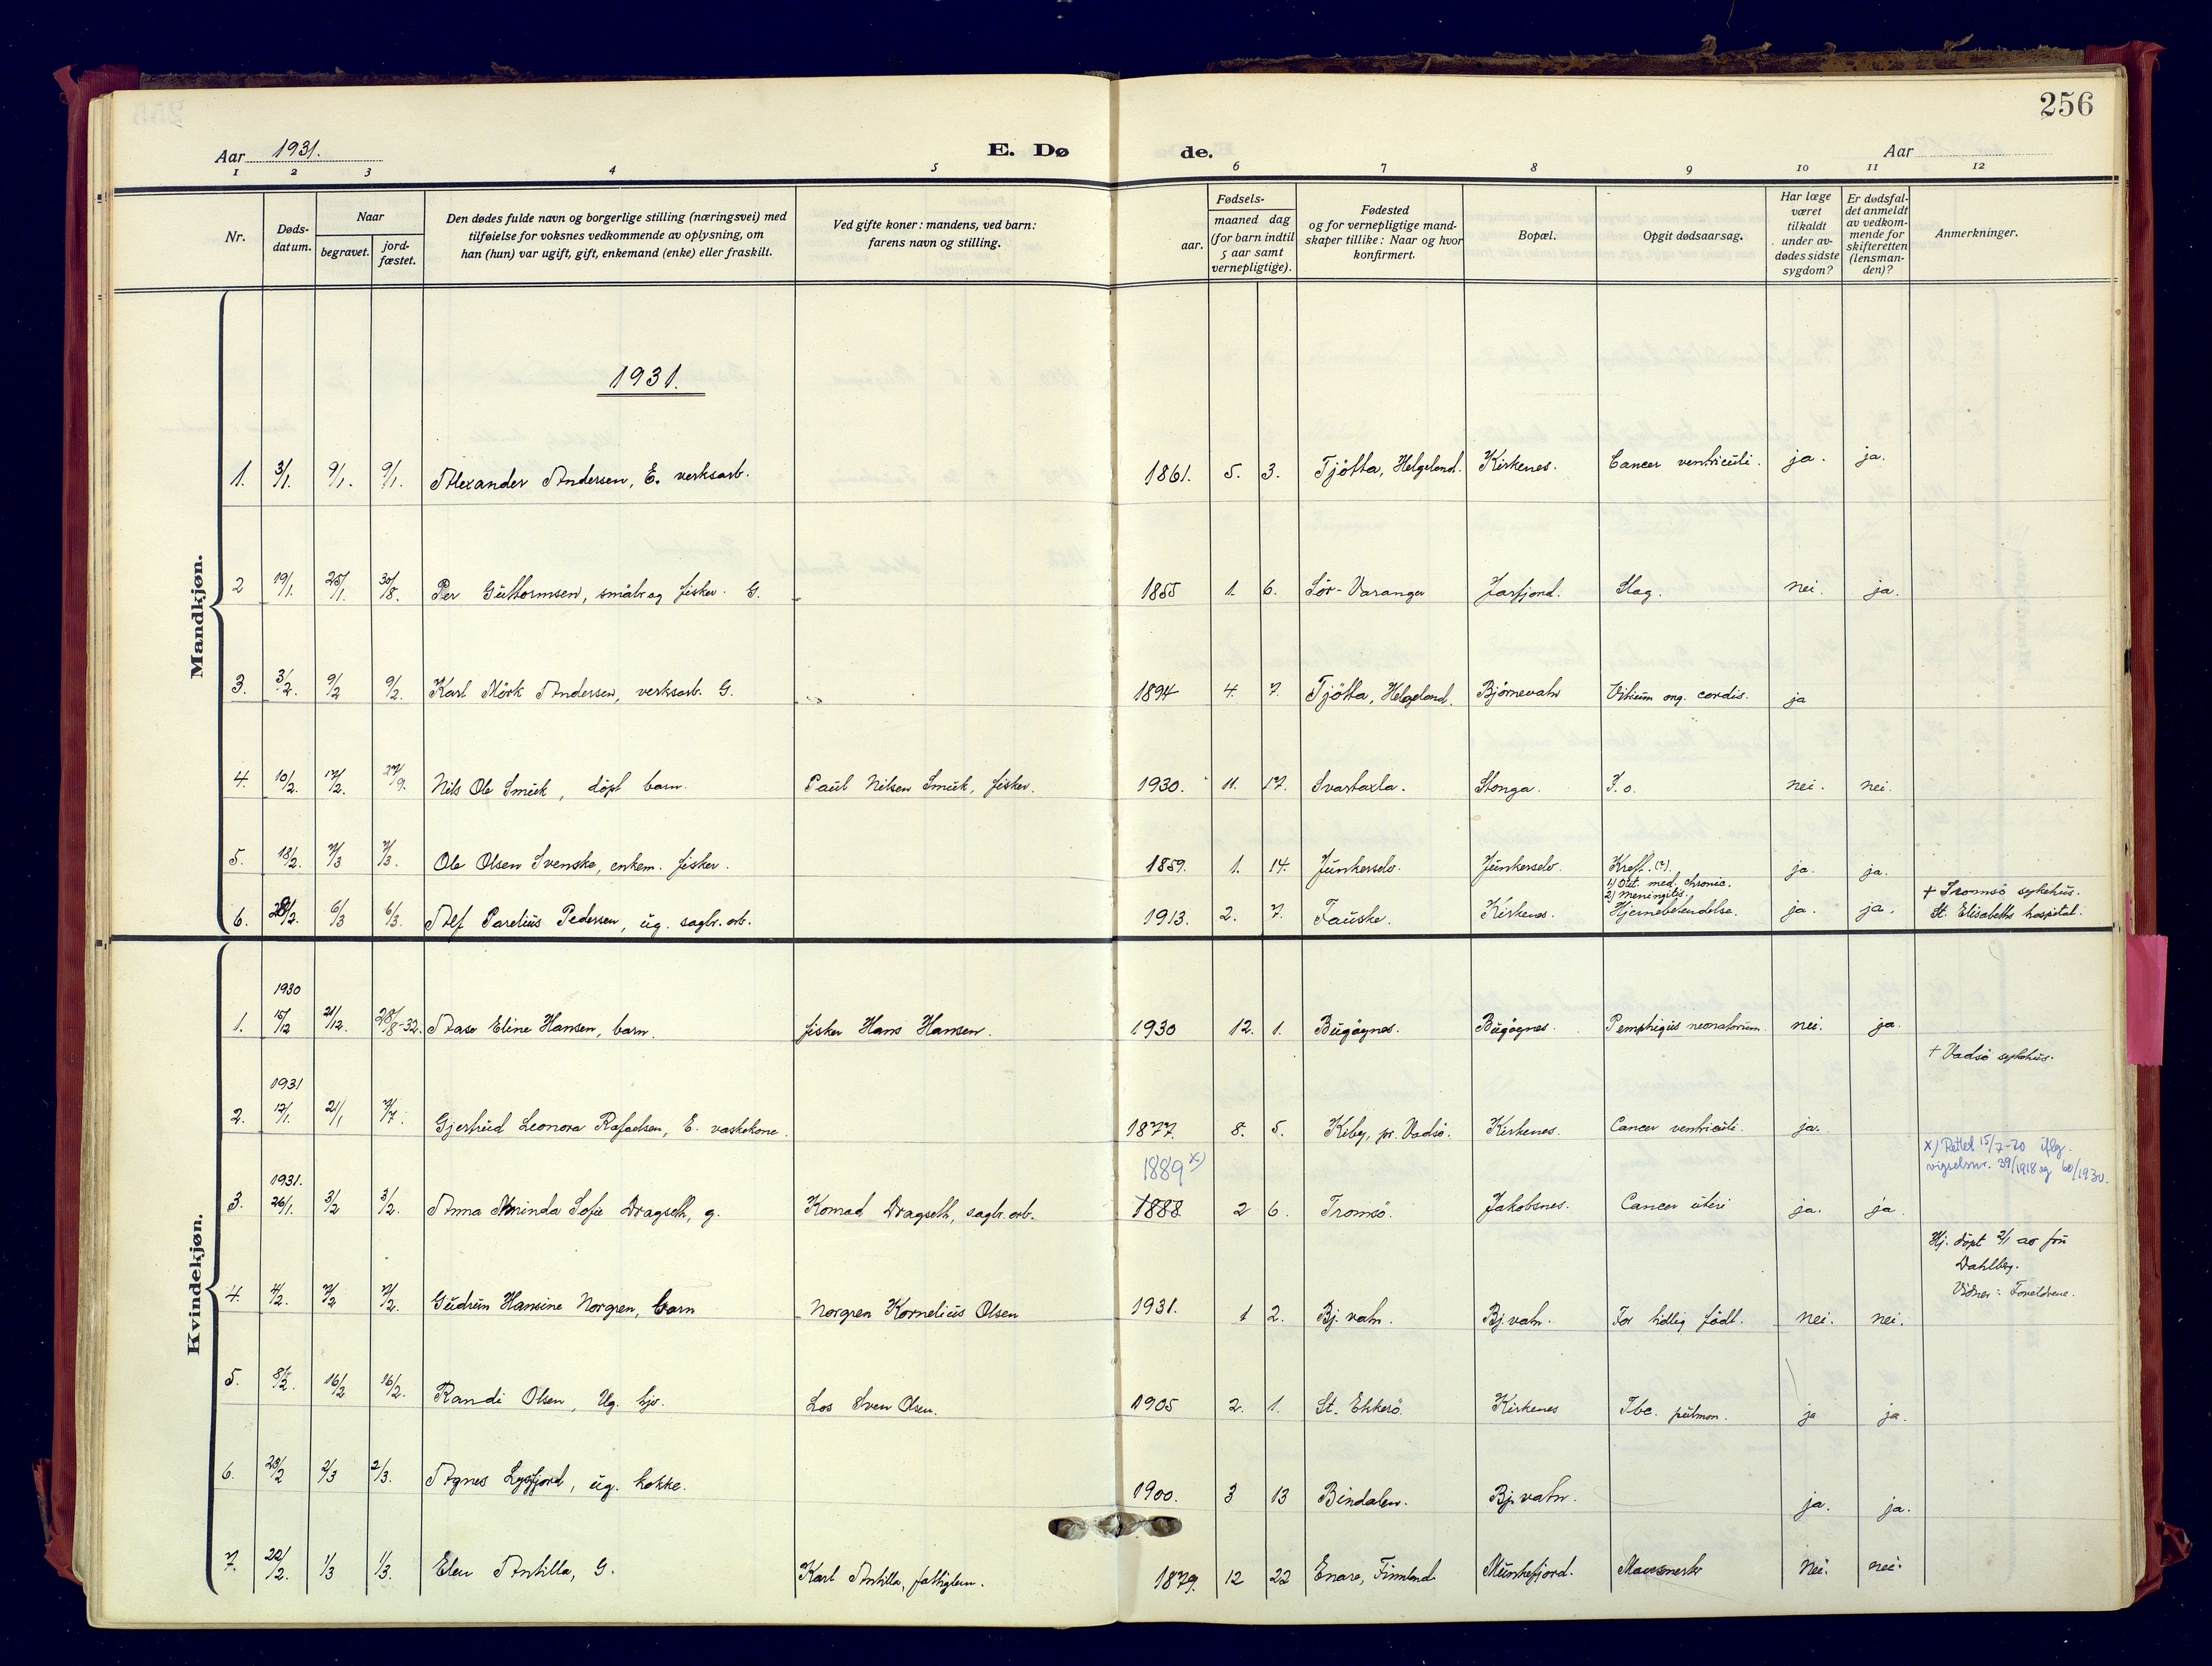 256
Aar 1931.
E. Dø de.
Aar
1 2 3 4 5 6 7 8 9 10 11 12
Nr.
Døds-
datum.
Naar
begravet.
jord-
fæstet.
Den dødes fulde navn og borgerlige stilling (næringsvei) med
tilføielse for voksnes vedkommende av oplysning, om
han (hun) var ugift, gift, enkemand (enke) eller fraskilt.
Ved gifte koner: mandens, ved barn:
farens navn og stilling.
Fødsels-
aar.
maaned dag
(for barn indtil
5 aar samt
vernepligtige).
Fødested
og for vernepligtige mand-
skaper tillike: Naar og hvor
konfirmert.
Bopæl.
Opgit dødsaarsag.
Har læge
været
tilkaldt
under av-
dødes sidste
sygdom?
Er dødsfal-
det anmeldt
av vedkom-
mende for
skifteretten
(lensman-
den)?
Anmerkninger.
1931.
Mandkjøn.
1. 3/1. 9/1. 9/1. Alexander Andersen, E. verksarb. 1861. 5. 3. Tjötta, Helgeland. Kirkenes. Cancer ventriculi. ja. ja.
2 19/1. 25/1. 30/8. Per Guttormsen, småbr. og fisker. G. 1855 1. 6. Sör-Varanger Jarfjord. Slag. nei. ja.
3. 3/2. 9/2 9/2. Karl Mörk Andersen, verksarb. G. 1894 4. 7. Tjötta, Helgeland. Björnevatn Vitium org. cordis. ja
4. 10/2. 17/2. 27/9. Nils Ole Smuk, döpt barn. Paul Nilsen Smuk, fisker. 1930. 11. 17. Svartaxla. Stonga. I. o. nei. nei.
5. 18/2. 7/3 7/3. Ole Olsen Svenske, enkem. fisker. 1859. 1. 14. Junkerselv. Junkerselv. Kreft. (?). ja. ja.
1) Otit. med. chronic.
2) Meningitis.
+ Tromsö sykehus.
6. 28/2. 6/3 6/3. Alf Parelius Pedersen, ug. sagbr. arb. 1913. 2. 7. Fauske. Kirkenes. Hjernebetendelse. ja. ja. St. Elisabeths hospital.
Kvindekjøn.
1930
1. 15/12 21/12. 28/8-32. Aase Eline Hansen, barn. fisker Hans Hansen. 1930 12. 1. Bugöynes. Bugöynes. Pemphigus neonatorum. nei. ja.
+ Vadsö sykehus.
1931
2. 12/1. 21/1 7/7. Gjertrud Leonora Rafaelsen, E. vaskekone. 1877. 8. 5. Kiby, pr. Vadsö. Kirkenes. Cancer ventriculi. ja.
1889 x)
x) Rettet 15/7-70 iflg.
vigselsnr. 39/1918 og 60/1930.
1931.
3. 26/1. 3/2 3/2. Anna Aminda Sofie Dragseth, g. Konrad Dragseth, sagbr. arb. 1888 2 6. Tromsö. Jakobsnes. Cancer uteri ja. ja.
Hj. döpt 2/1 av fru
Dahlberg.
Vidner: Foreldrene.
4. 4/2. 7/2 7/2. Gudrun Hansine Norgren, barn Norgren Kornelius Olsen 1931. 1 2. Bj. vatn. Bj. vatn. For tidlig födt. nei. nei.
5. 8/2. 16/2 16/2. Randi Olsen, Ug. hjv. Los Sven Olsen. 1905 2. 1. St. Ekkerö. Kirkenes Tbc. pulmon. ja ja.
6. 23/2 2/3 2/3. Agnes Lysfjord, ug. kokke. 1900. 3 13 Bindalen. Bj. vatn. ja. ja.
7. 22/2. 1/3 1/3. Elen Antilla, G. Karl Antilla, fattiglem. 1879. 12 22 Enare, Finnland Munkefjord. nei. nei.